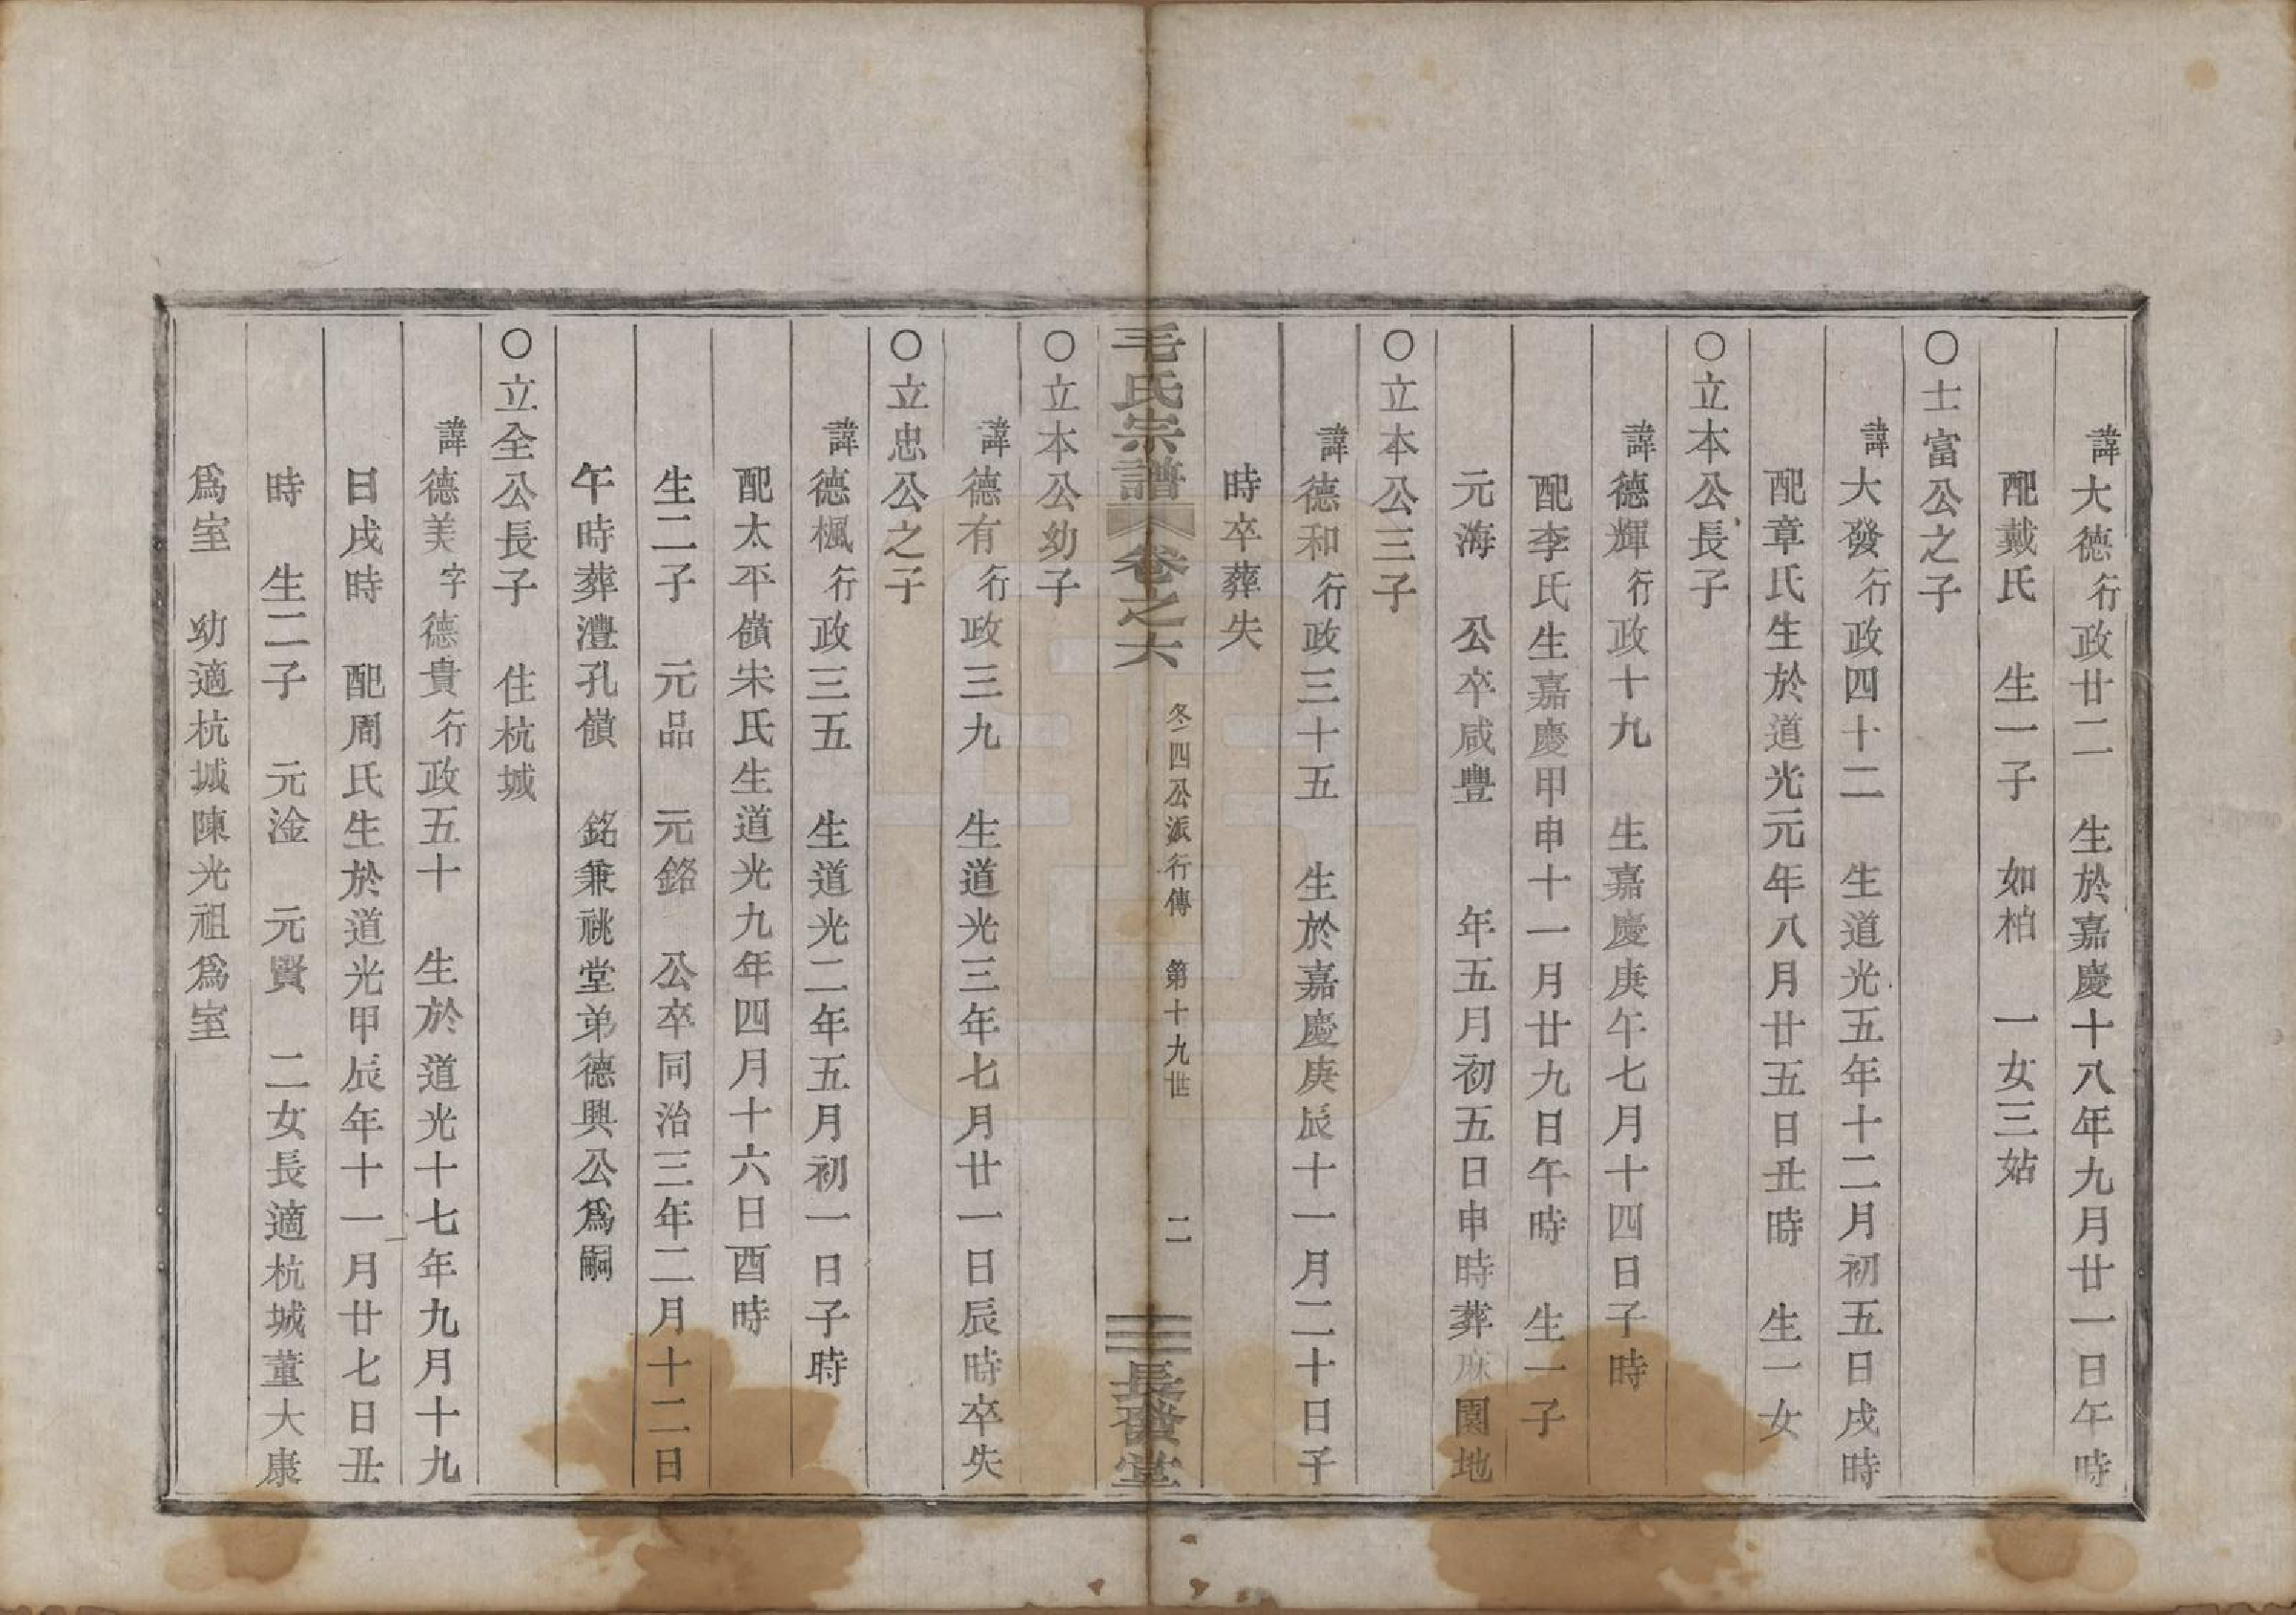 諱大德行政廿二　生於嘉慶十八年九月廿一日午時
配戴氏　生一子　如柏　一女三姑
〇士富公之子
諱大發行政四十二　生道光五年十二月初五日戌時
配章氏生於道光元年八月廿五日丑時　生一女
〇立本公長子
諱德輝行政十九　生嘉慶庚午七月十四日子時
配李氏生嘉慶甲申十一月廿九日午時　生一子
元海　公卒咸豐　　年五月初五日申時葬麻園地
〇立本公三子
諱德和行政三十五　生於嘉慶庚辰十一月二十日子
時卒葬失
毛氏宗譜　卷之六　冬四公派行傳　第十九世　二　長發堂
〇立本公幼子
諱德有行政三九　生道光三年七月廿一日辰時卒失
〇立忠公之子
諱德楓行政三五　生道光二年五月初一日子時
配太平嶺朱氏生道光九年四月十六日酉時
生二子　元品　元銘　公卒同治三年二月十二日
午時葬灃孔嶺　銘兼祧堂弟德興公爲嗣
〇立全公長子　住杭城
諱德美字德貴行政五十　生於道光十七年九月十九
日戌時　配周氏生於道光甲辰年十一月廿七日丑
時　生二子　元淦　元賢　二女長適杭城董大康
爲室　幼適杭城陳光祖爲室